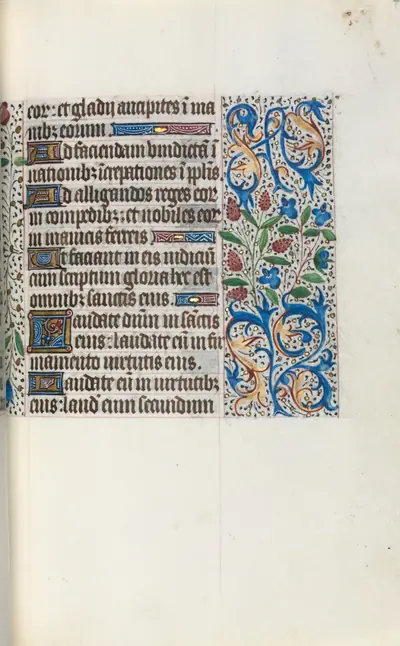 eor: et gladii ancipites ĩ ma
nibꝫ eorum
Ad faciendam vindictã ĩ
nationibꝫ ĩcrepationes ĩ pplis
Ad alligandos reges eor
in compedibꝫ: et nobiles eor
in manicis ferreis
Ut faciant in eis iudiciũ
conscriptum gloria hec est
omnibꝫ sanctis eius
Laudate dñm in sãctis
eius: laudate eũ in fir
mamento virtutis eius.
Laudate eũ in virtutibꝫ
eius: laud eum secundum